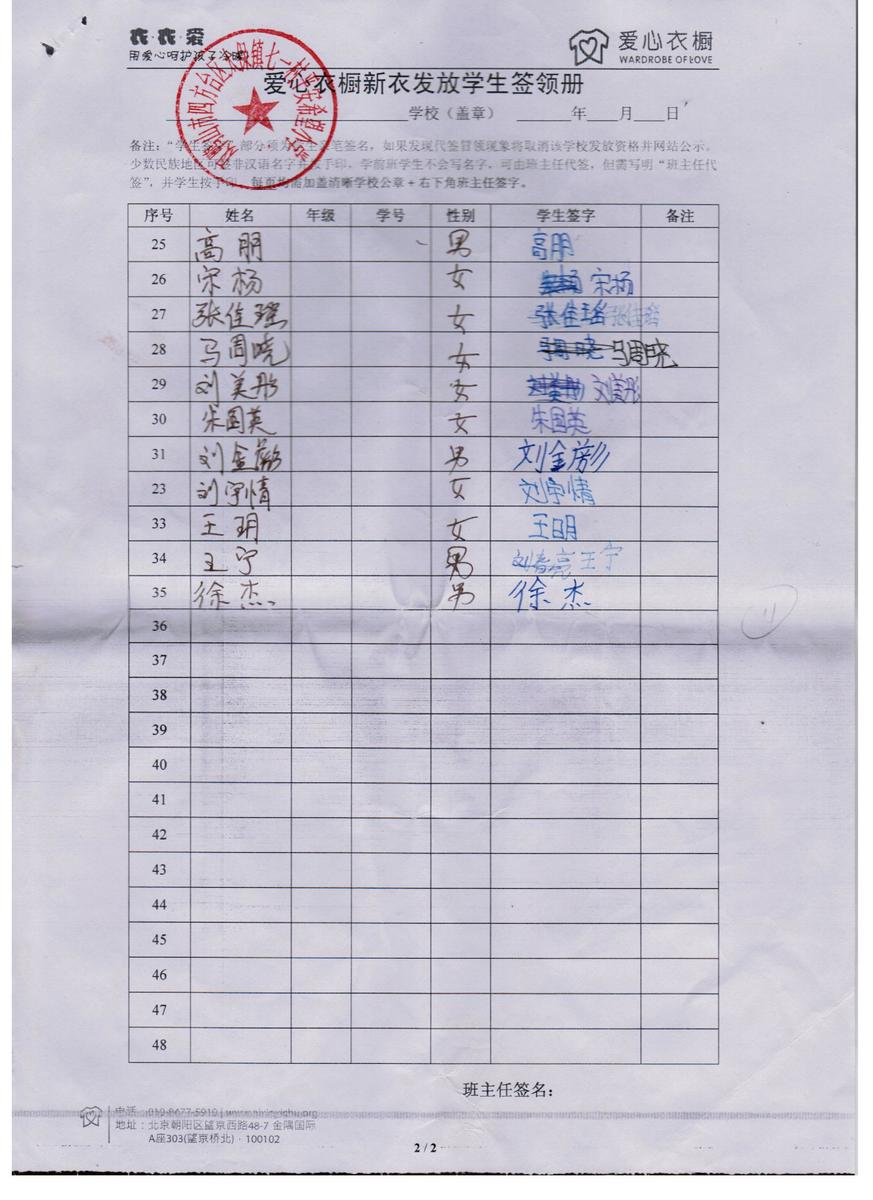 衣·衣·爱
用爱心呵护孩子冷暖
爱心衣橱
WARDROBE OF LOVE
爱心衣橱新衣发放学生签领册
学校（盖章） 年 月 日
备注：“学生签字”部分须为学生亲笔签名，如果发现代签冒领现象将取消该学校发放资格并网站公示。
少数民族地区可签非汉语名字并按手印。学前班学生不会写名字，可由班主任代签，但需写明“班主任代
签”，并学生按手印。每页均需加盖清晰学校公章＋右下角班主任签字。
序号 姓名 年级 学号 性别 学生签字 备注
25 高朋 男 高朋
26 宋杨 女 宋杨
27 张佳瑶 女 张佳瑶 张佳瑶
28 马周晓 女 马周晓
29 刘美彤 女 刘美彤
30 朱国英 女 朱国英
31 刘金 男 刘金
23 刘宇情 女 刘宇情
33 王玥 女 王玥
34 王宁 男 王宁
35 徐杰 男 徐杰
36
37
38
39
40
41
42
43
44
45
46
47
48
班主任签名：
电话：010-8677-5910 | www.aixinyichu.org
地址：北京朝阳区望京西路48-7 金隅国际
A座303(望京桥北)·100102
2 / 2